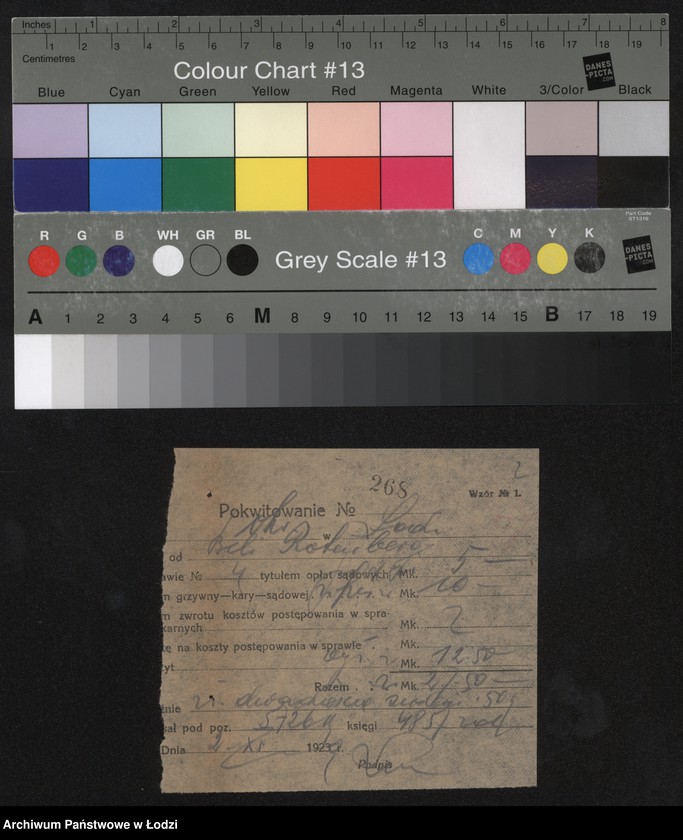 Inches 1 2 3 4 5 6 7 8
1 2 3 4 5 6 7 8 9 10 11 12 13 14 15 16 17 18 19
Centimetres
Colour Chart #13
DANES-PICTA.COM
Blue Cyan Green Yellow Red Magenta White 3/Color Black
Part Code
ST1316
R G B WH GR BL Grey Scale #13 C M Y K
DANES-PICTA.COM
A 1 2 3 4 5 6 M 8 9 10 11 12 13 14 15 B 17 18 19
2
268
Wzór № 1.
Pokwitowanie №
w
od Rotenberg
awie № 4 tytułem opłat sądowych Mk. 5 —
n grzywny—kary—sądowej Mk. 10 —
n zwrotu kosztów postępowania w spra-
karnych Mk. 2
tę na koszty postępowania w sprawie
yt Mk. 12.50 —
Razem . . Mk.
nie
ał pod poz. księgi
Dnia 2. XI 1923 r.
Podpis
Archiwum Państwowe w Łodzi